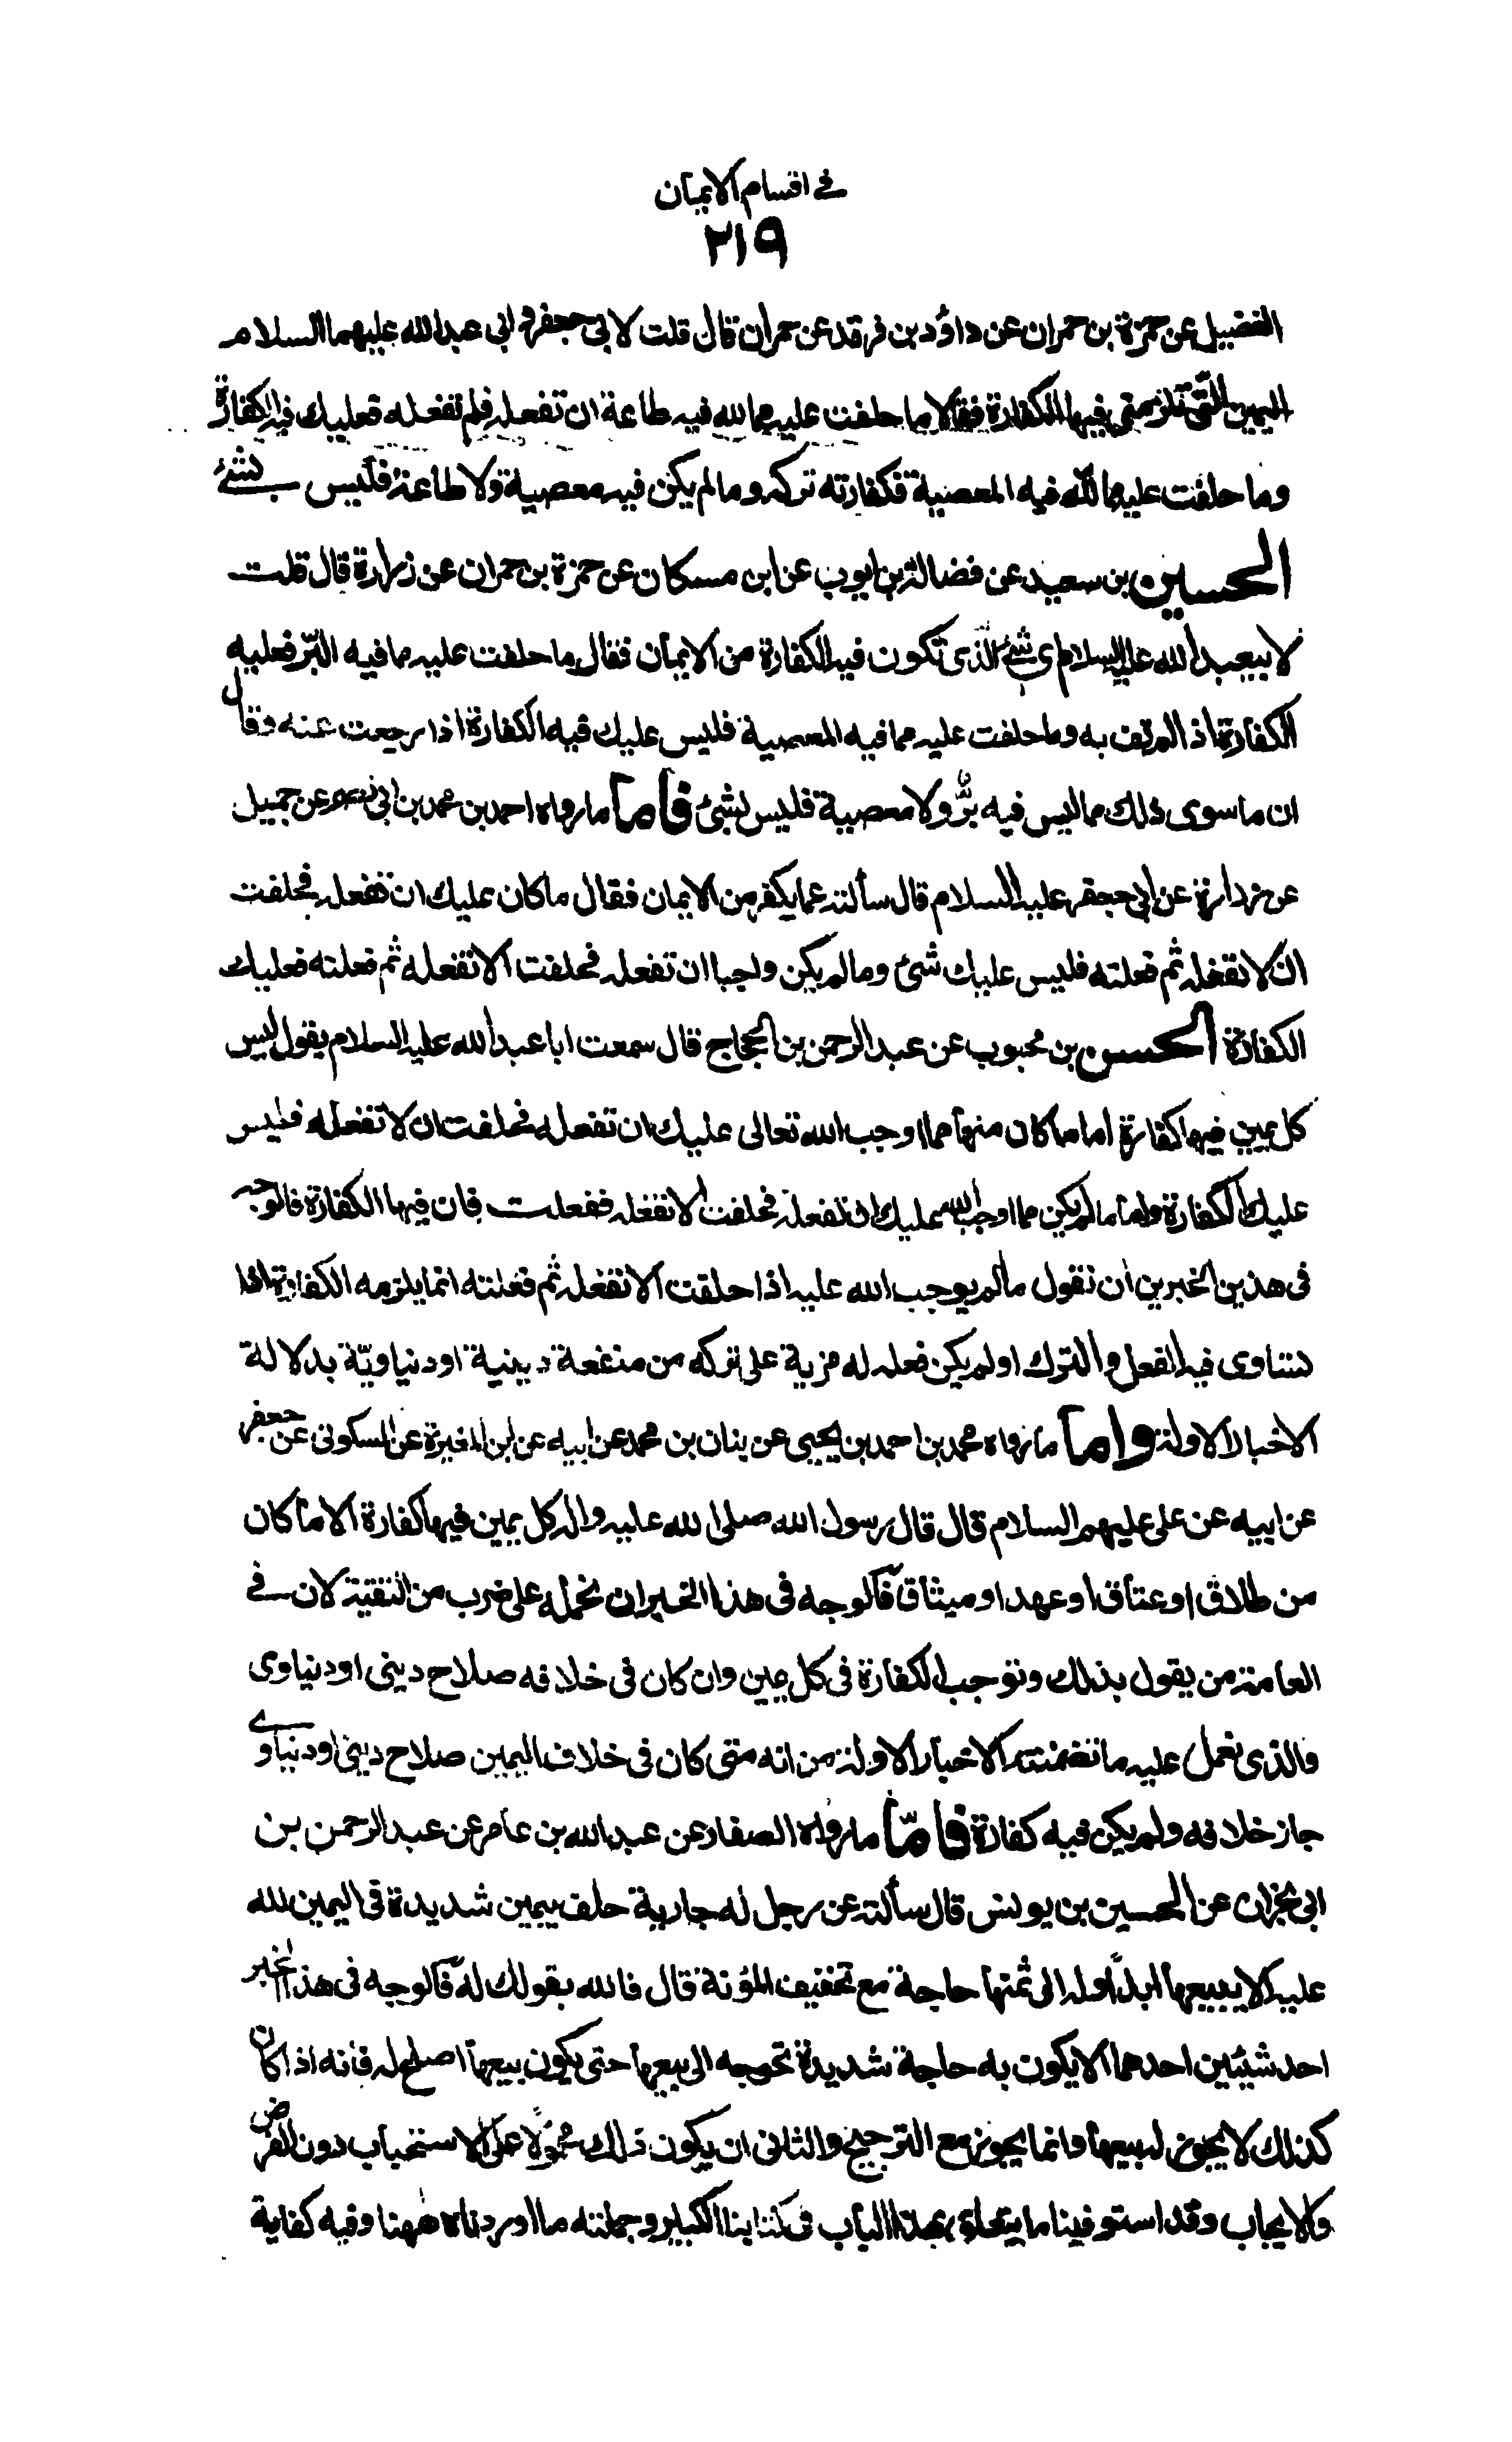 في اقسام الايمان
٢١٩
الفضيل عن حمزة بن حمران عن داؤد بن فرقد عن حمران قال قلت لابي جعفر وابي عبد الله عليهما السلام
اليمين التي تلزمني فيها الكفارة فقالا ما حلفت عليه مما لله فيه طاعة ان تفعله فلم تفعله فعليك فيه الكفارة
وما حلفت عليه مما لله فيه المعصية فكفارته تركه وما لم يكن فيه معصية ولا طاعة فليس بشئ
الحسين بن سعيد عن فضالة بن ايوب عن ابن مسكان عن حمزة بن حمران عن زرارة قال قلت
لابيعبد الله عليه السلام اي شئ الذي تكون فيه الكفارة من الايمان فقال ما حلفت عليه مما فيه البر فعليه
الكفارة اذا لم تف به وما حلفت عليه مما فيه المعصية فليس عليك فيه الكفارة اذا رجعت عنه وقال
ان ما سوى ذلك مما ليس فيه بر ولا معصية فليس بشئ فاما ما رواه احمد بن محمد بن ابي نصر عن جميل
عن زرارة عن ابي جعفر عليه السلام قال سألته عما يكفر من الايمان فقال ما كان عليك ان تفعله فحلفت
ان لا تفعله ثم فعلته فليس عليك شئ وما لم يكن واجبا ان تفعله فحلفت الا تفعله ثم فعلته فعليك
الكفارة الحسن بن محبوب عن عبد الرحمن بن الحجاج قال سمعت ابا عبد الله عليه السلام يقول ليس
كل يمين فيها كفارة اما ما كان منها مما اوجب الله تعالى عليك ان تفعله فحلفت ان لا تفعله فليس
عليك الكفارة واما ما لم يكن مما اوجب الله عليك ان تفعله فحلفت الا تفعله ففعلت فان فيها الكفارة فالوجه
في هذين الخبرين ان نقول ما لم يوجب الله عليه اذا حلفت الا تفعله ثم فعلته انما يلزمه الكفارة اذا
تساوى فيه الفعل والترك او لم يكن فعله له مزية على تركه من منفعة دينية او دنياويّة بدلالة
الاخبار الاولة واما ما رواه محمد بن احمد بن يحيى عن بنان بن محمد عن ابيه عن ابن المغيرة عن السكوني عن جعفر
عن ابيه عن على عليهم السلام قال قال رسول الله صلى الله عليه واله كل يمين فيها كفارة الا ما كان
من طلاق او عتاق او عهد او ميثاق فالوجه في هذا الخبر ان نحمله على ضرب من التقية لان في
العامة من يقول بذلك وتوجب الكفارة في كل يمين وان كان في خلافه صلاح ديني او دنياوي
والذي نعمل عليه ما تضمنته الاخبار الاولة من انه متى كان في خلاف اليمين صلاح ديني او دنياوي
جاز خلافه ولم يكن فيه كفارة فامّا ما رواه الصفار عن عبد الله بن عامر عن عبد الرحمن بن
ابي نجران عن الحسين بن يونس قال سألته عن رجل له جارية حلف بيمين شديدة في اليمين لله
عليه الا يبيعها ابداً وله الى ثمنها حاجة مع تخفيف المؤنة قال فالله بقولك له فالوجه في هذا الخبر
احد شيئين احدهما الا يكون به حاجة شديدة تحوجه الى بيعها حتى يكون بيعها اصلح له فانه اذا كان
كذلك لا يجوز له بيعها وانما يجوز مع الترجيح والثاني ان يكون ذلك محمولاً على الاستحباب دون الفرض
والايجاب وقد استوفينا ما يتعلق بهذا الباب في كتابنا الكبير وجملته ما اوردناه ههنا وفيه كفاية